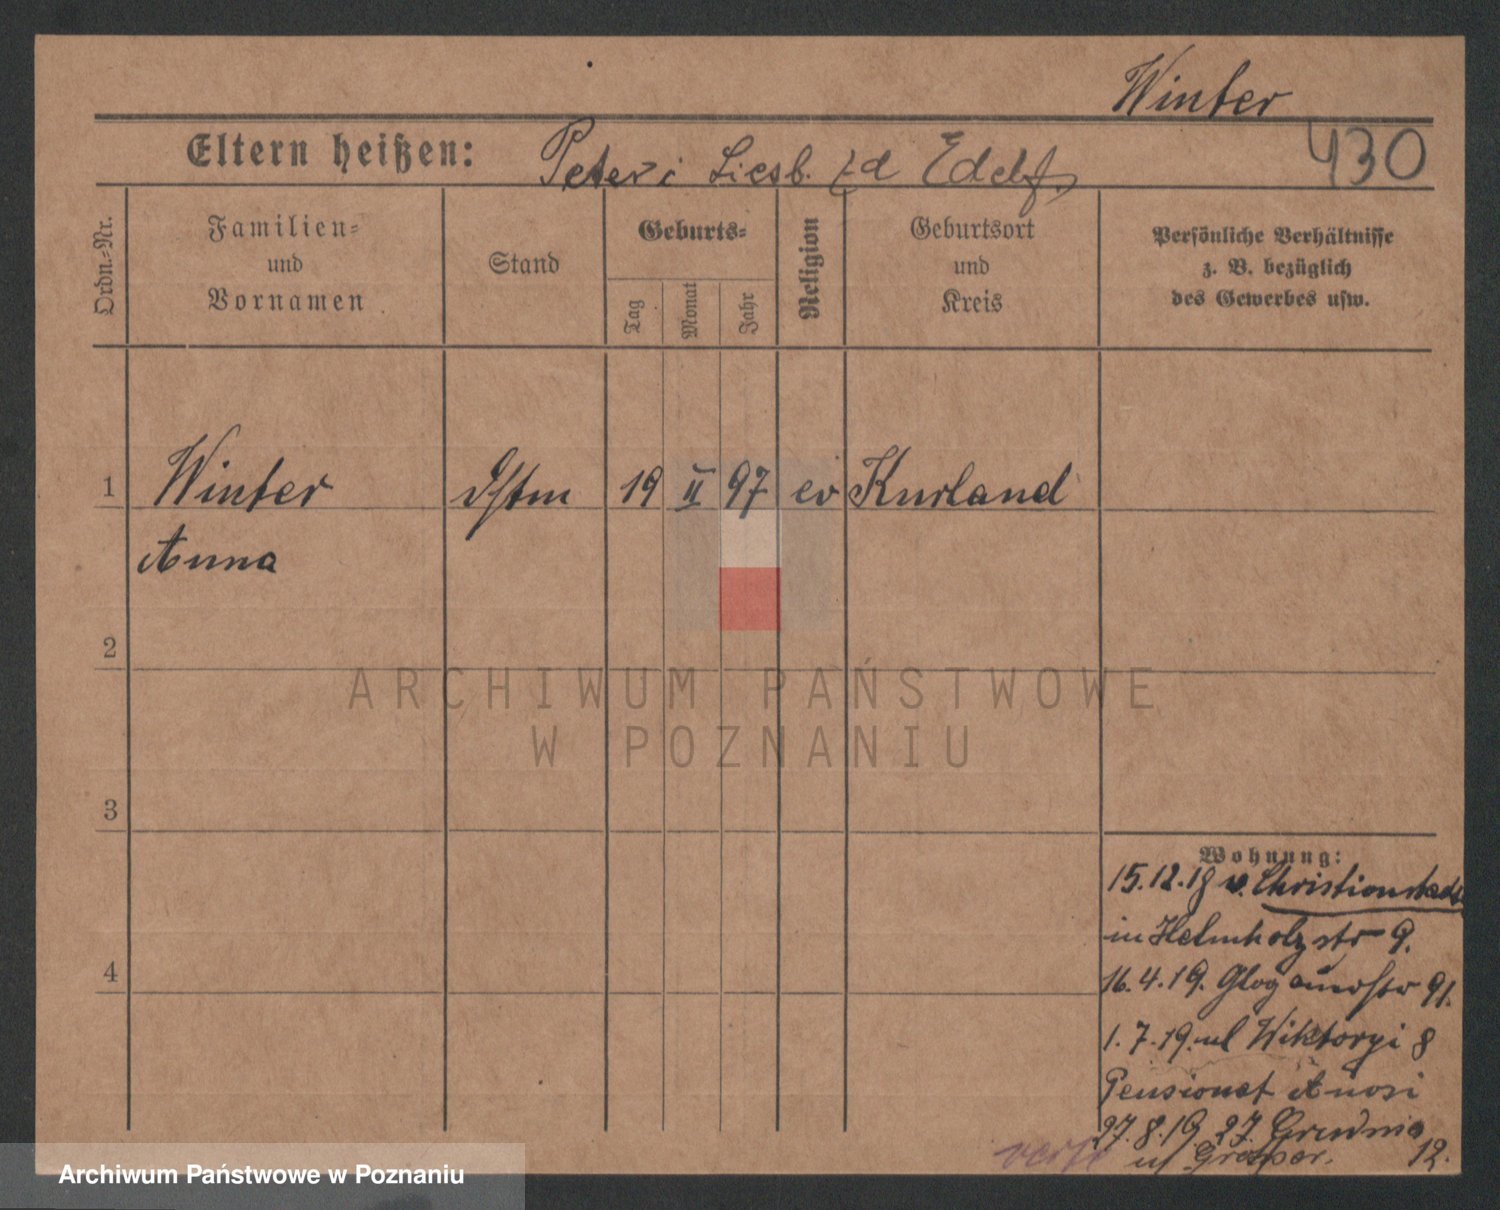 Winter
Eltern heißen: Peter i Liesb. 430
Ordn.-Nr.
Familien-
und
Vornamen
Stand
Geburts-
Tag
Monat
Jahr
Religion
Geburtsort
und
Kreis
Persönliche Verhältnisse
z. B. bezüglich
des Gewerbes usw.
1 Winter 19 II 97 ev Kurland
Anna
2
3
4
Wohnung:
15.12.18 v. Christianstadt
in Helmholzstr 9.
16.4.19. Glogauerstr 91.
1.7.19. ul Wiktoryi 8
Pensionat
27.8.19. 27. Grudnia
ul 12.
ARCHIWUM PAŃSTWOWE
W POZNANIU
Archiwum Państwowe w Poznaniu